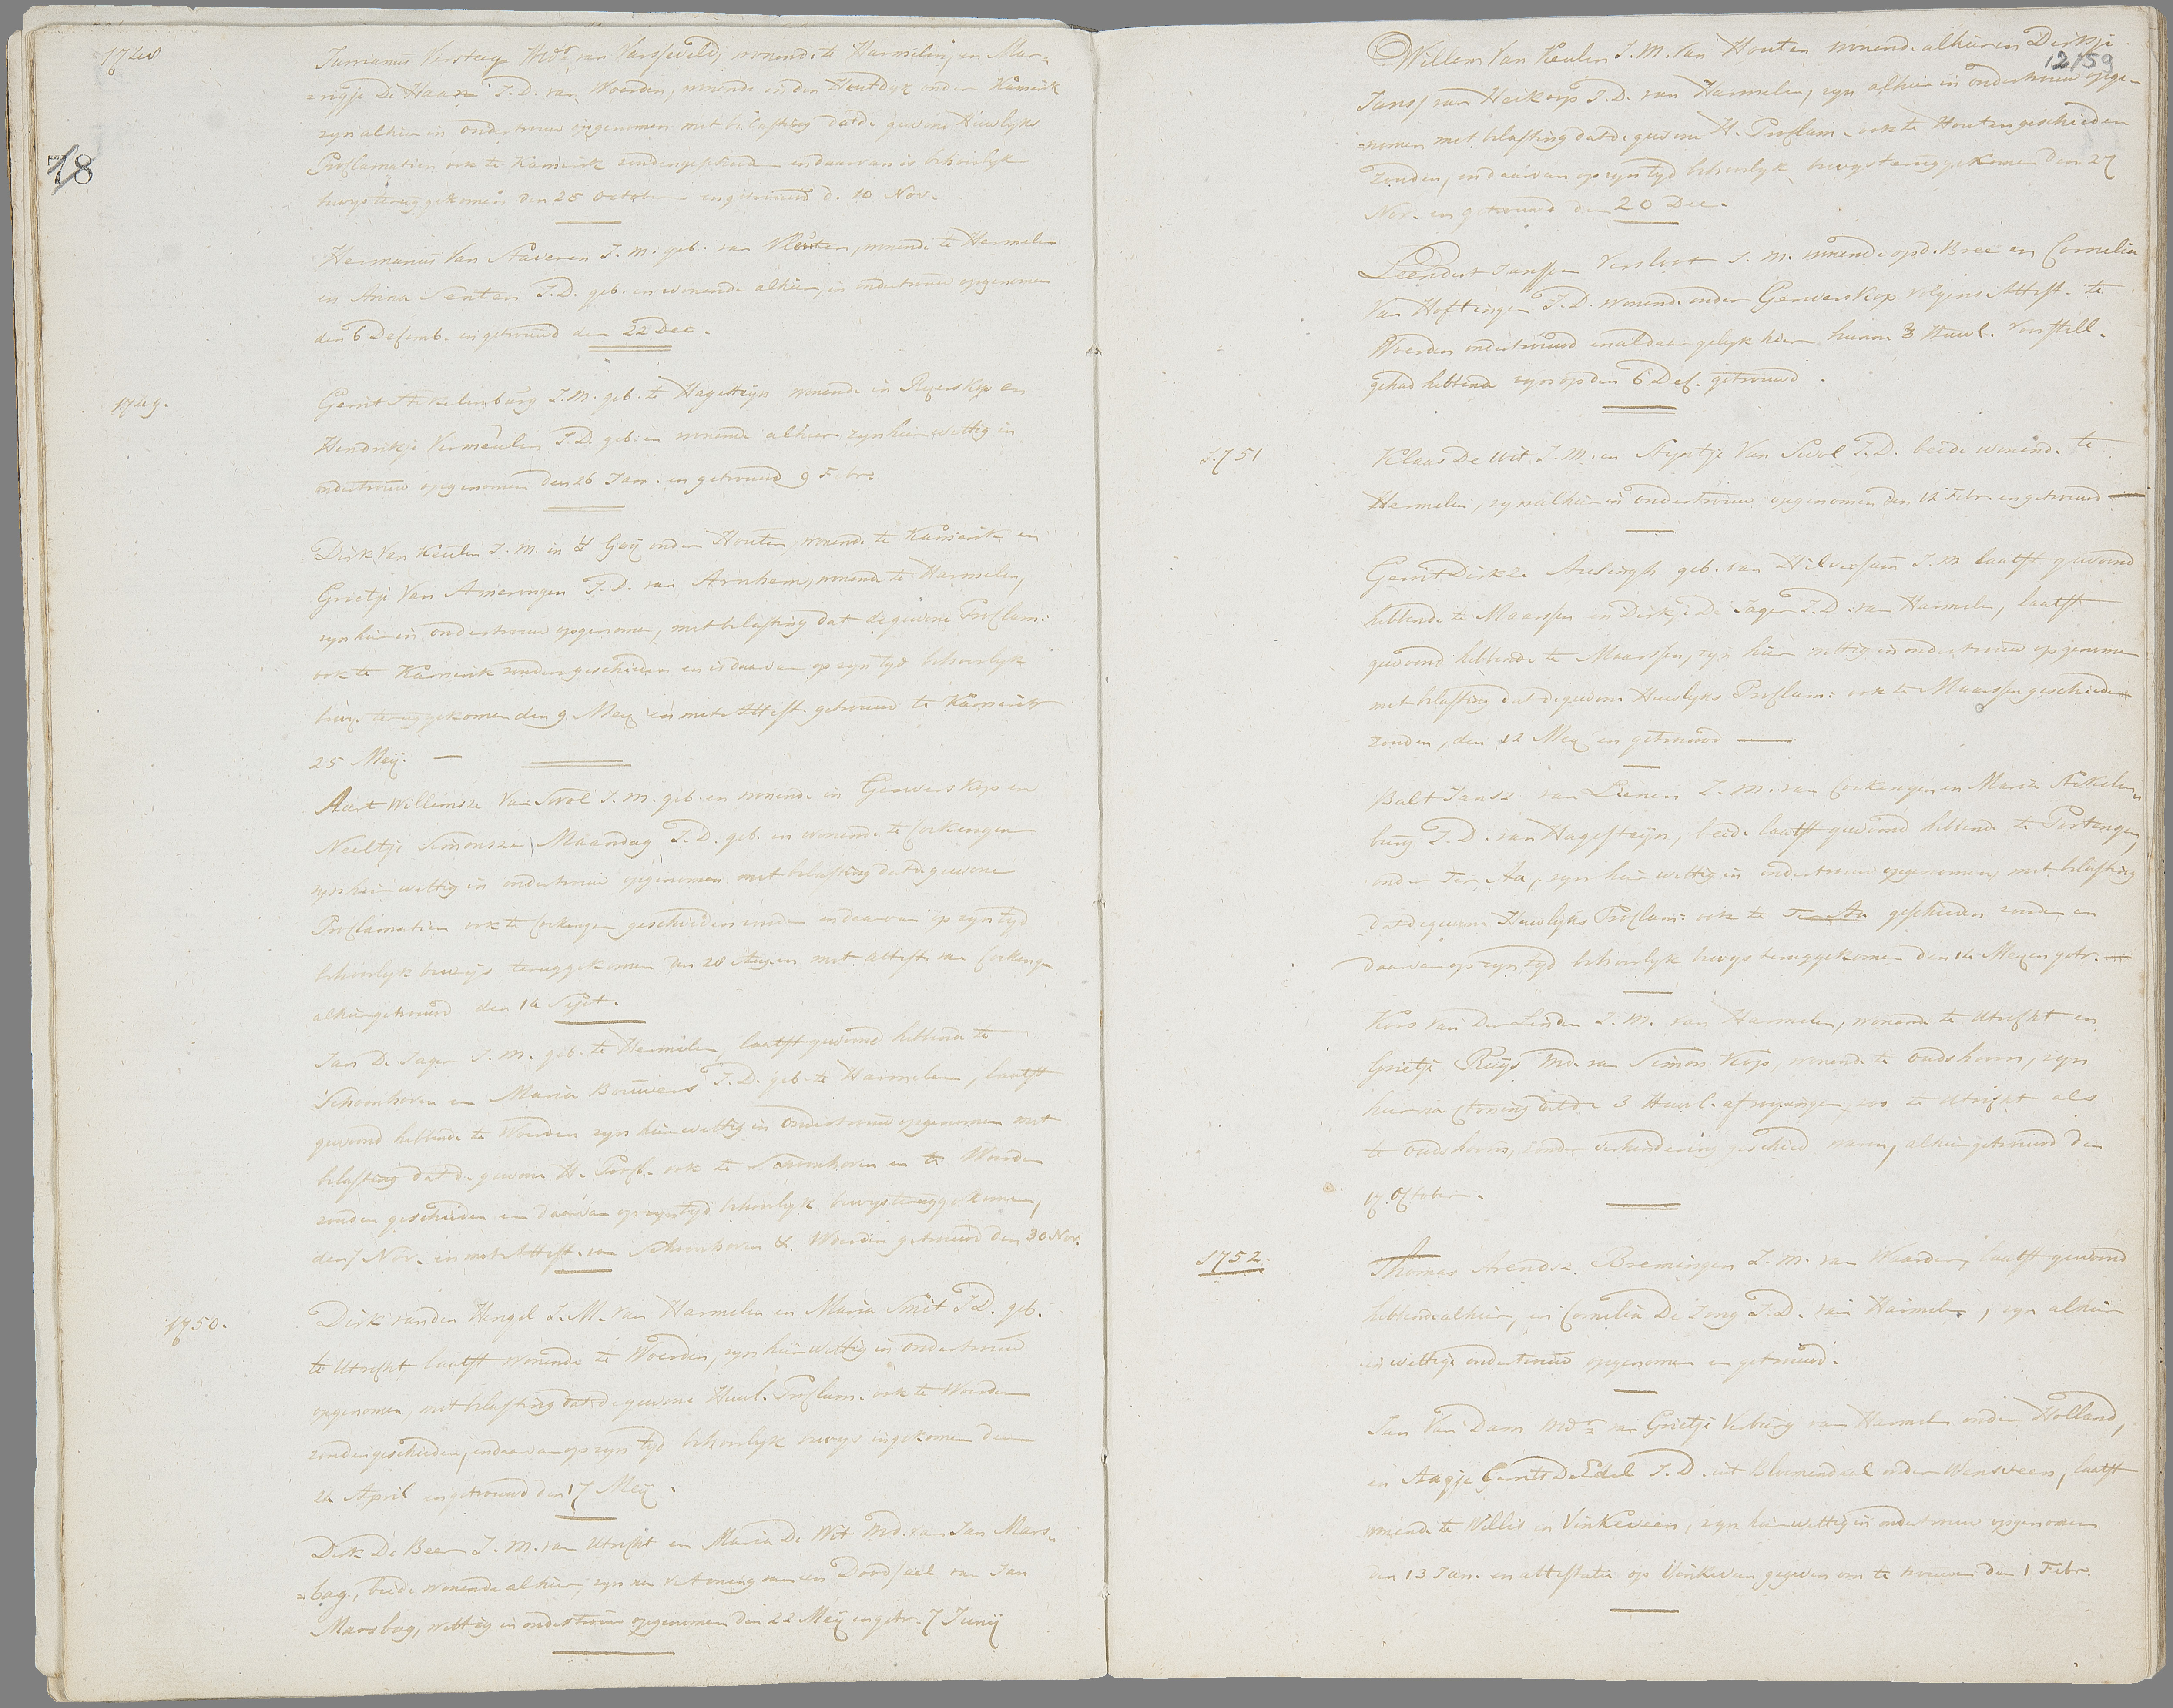 1748
Jurrianus Versteeg Wedr van Varsseveld, wonende te Harmelen, en Mar-
=rigje De Haan J.D. van Woerden, wonende in den Houtdyk onder Kamerik
zyn alhier in ondertrouw opgenomen met belasting dat de gewone Huwlyks
78
Proclamatien ook te Kamerik zouden geschieden en daarvan is behoorlyk
bewys teruggekomen den 25 October en getrouwd d. 10 Nov.
Hermanus Van Staveren J.M. geb. van Vleuten, wonende te Harmelen
en Anna Senten J.D. geb. en wonende alhier, in ondertrouw opgenomen
den 6 Decemb. en getrouwd den 22 Dec.
1749.
Gerrit Stekelenburg J.M. geb. te Hagesteyn wonende in Reyerskop en
Hendrikje Vermeulen J.D. geb. en wonende alhier zyn hier wettig in
ondertrouw opgenomen den 26 Jan. en getrouwd 9 Febr.
Dirk Van Keulen J.M. in 't Goy onder Houten, wonende te Kamerik en
Grietje Van Amerongen J.D. van Arnhem, wonende te Harmelen,
zyn hier in ondertrouw opgenomen, met belasting dat de gewone Proclam:
ook te Kamerik zouden geschieden en is daarvan op zyn tyd behoorlyk
bewys teruggekomen den 9 Mey en met Attest. getrouwd te Kamerik
25 Mey. —
Aart Willemsze Van Swol J.M. geb. en wonende in Gerverskop en
Neeltje Simonsze Maandag J.D. geb. en wonende te Cockengen
zyn hier wettig in ondertrouw opgenomen met belasting dat de gewone
Proclamatien ook te Cockengen geschieden zouden en daarvan op zyn tyd
behoorlyk bewys teruggekomen den 28 Aug. en met attest. van Cockengen
alhier getrouwd den 14 Sept.
Jan De Jager J.M. geb. te Harmelen, laatst gewoond hebbende te
Schoonhoven en Maria Bouwens J.D. geb. te Harmelen, laatst
gewoond hebbende te Woerden zyn hier wettig in Ondertrouw opgenomen met
belasting dat de gewone H. Procl. ook te Schoonhoven en te Woerden
zouden geschieden en daarvan op zyn tyd behoorlyk bewys teruggekomen,
den Nov. en met Attest. van Schoonhoven &. Woerden getrouwd den 30 Nov.
1750.
Dirk van den Hengel J.M. van Harmelen en Maria Smit J.D. geb.
te Utrecht laatst wonende te Woerden, zyn hier wettig in ondertrouw
opgenomen, met belasting dat de gewone Huwl. Proclam. ook te Woerden
zouden geschieden, en daarvan op zyn tyd behoorlyk bewys ingekomen den
24 April en getrouwd den 17 Mey.
Dirk De Beer J.M. van Utrecht en Maria De Wit Wd. van Jan Mars-
=bag, beide wonende alhier, zyn na vertoning van een Doodceel van Jan
Marsbag, wettig in ondertrouw opgenomen den 22 Mey en getr. 7 Juny
12/59
Willem Van Keulen J.M. van Houten wonende alhier en Dirkje
Janss van Heikoop J.D. van Harmelen, zyn alhier in ondertrouw opge-
=nomen met belasting dat de gewone H. Proclam. ook te Houten geschieden
zouden, en daarvan op zyn tyd behoorlyk bewys teruggekomen den 27
Nov. en getrouwd den 20 Dec.
Leendert Janssen Versloot J.M. wonende op d. Bree en Cornelia
Van Hoftingen J.D. wonende onder Gerverskop volgens Attest. te
Woerden ondertrouwd en aldaar gelyk hier hunne 3 Huwl. Voorstell.
gehad hebbende zyn op den 6 Dec. getrouwd.
1751
Klaas De Wit J.M. en Styntje Van Swol J.D. beide wonende te
Harmelen, zyn alhier in ondertrouw opgenomen den 12 Febr. en getrouwd —
Gerrit Dirksze Ausingh geb. van Hilversum J.M. laatst gewoond
hebbende te Maarssen en Dirkje De Jager J.D. van Harmelen, laatst
gewoond hebbende te Maarssen, zyn hier wettig in ondertrouw opgenomen
met belasting dat de gewone Huwlyks Proclam: ook te Maarssen geschieden
zouden, den 12 Mey en getrouwd —
Balt Jansz van Lienen J.M. van Cockengen en Maria Stekelen-
burg J.D. van Hagesteyn, beide laatst gewoond hebbende te Portengen,
onder Ter Aa, zyn hier wettig in ondertrouw opgenomen, met belasting
dat de gewone Huwlyks Proclam: ook te Ter Aa geschieden zouden en
daarvan op zyn tyd behoorlyk bewys teruggekomen den 14 Mey en getr. —
Koos Van Der Linden J.M. van Harmelen, wonende te Utrecht en
Grietje Ruys Wd. van Simon Kop, wonende te Oudshoorn, zyn
hier na vertoning dat de 3 Huwl. afroepingen, zoo te Utrecht als
te Oudshoorn, zonder verhindering geschied waren, alhier getrouwd den
17 October.
1752.
Thomas Arendsz. Bremingen J.M. van Waarder, laatst gewoond
hebbende alhier, en Cornelia De Jong J.D. van Harmelen, zyn alhier
in wettige ondertrouw opgenomen en getrouwd.
Jan Van Dam Wedr van Grietje Verburg van Harmelen onder Holland,
en Aagje Gerrits De Edel J.D. uit Bloemendaal onder Wenseveen, laatst
wonende te Willis en Vinkeveen, zyn hier wettig in ondertrouw opgenomen
den 13 Jan. en attestatie op Vinkeveen gegeven om te trouwen den 1 Febr.